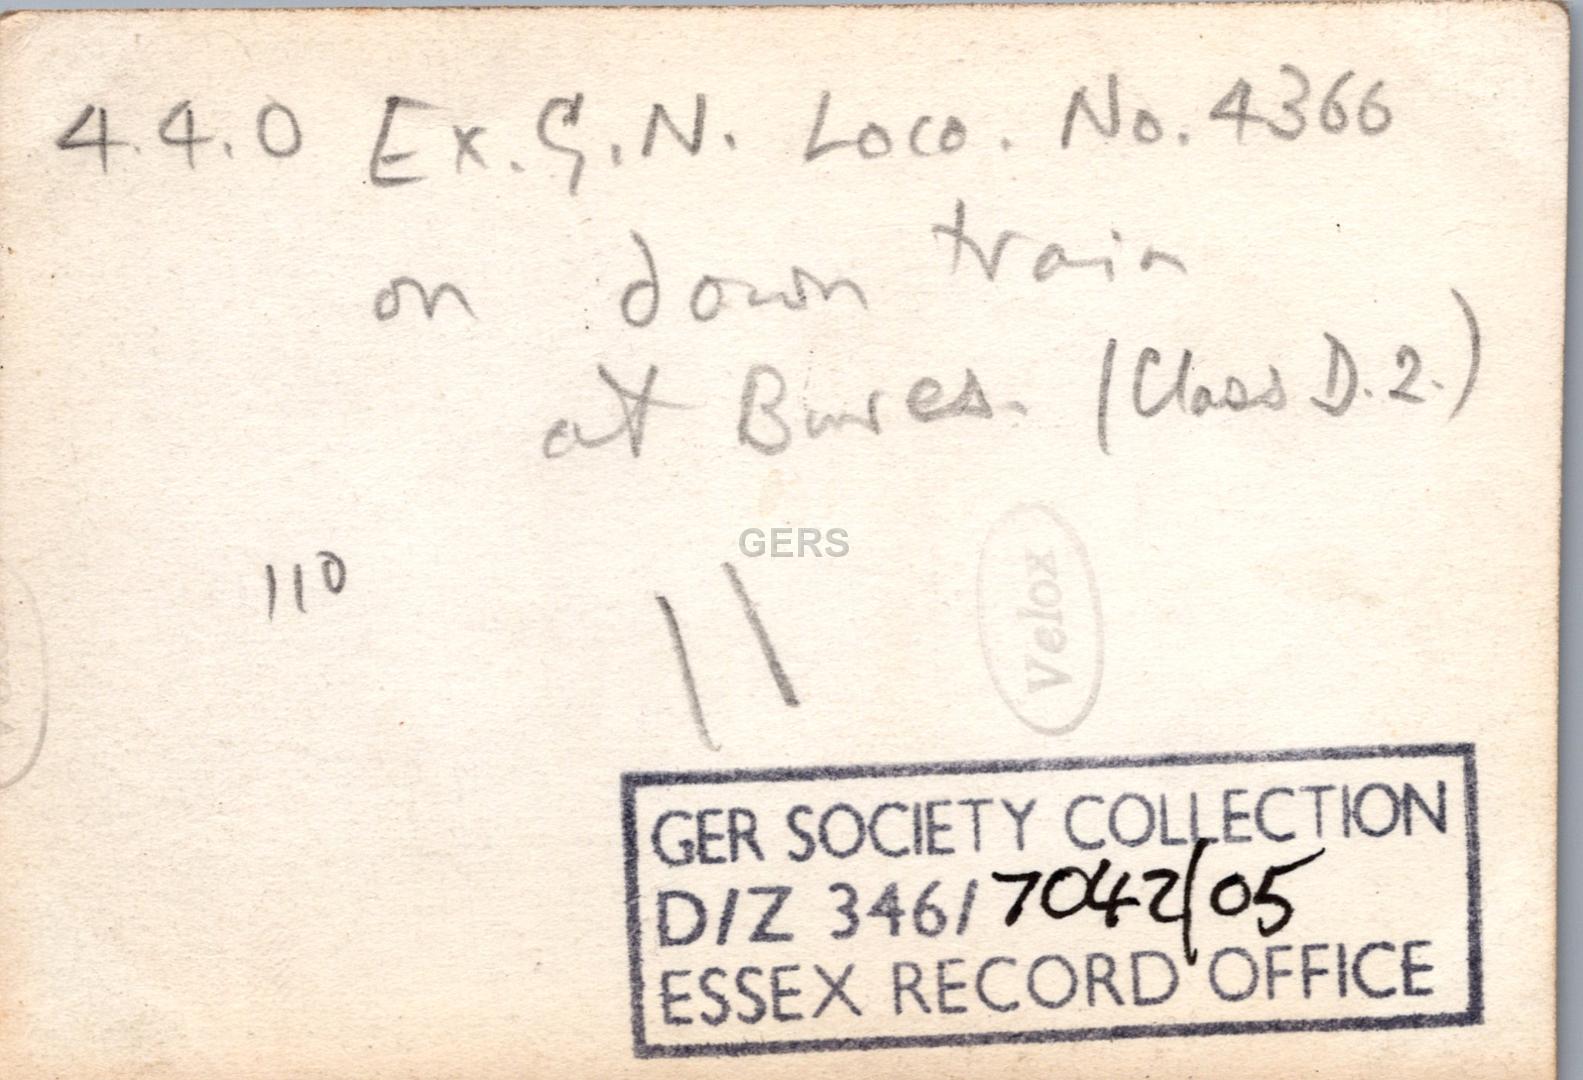 4.4.0 Ex. G.N. Loco. No. 4366
on down train
at Bures. (Class D.2.)
GERS
110
Velox
GER SOCIETY COLLECTION
D/Z 346/7042/05
ESSEX RECORD OFFICE